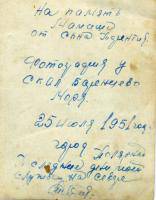 На память
Мамаше
от сына
Фотография у
скал Баренцево
Моря.
25 июля 1951 год.
город Полярный
служба на севере